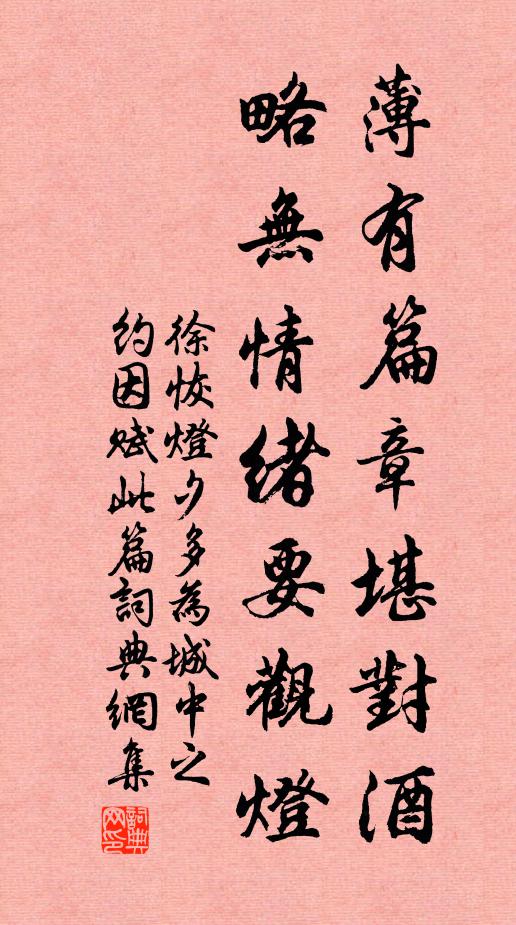 薄有篇章堪對酒
略無情緒要觀燈
徐恢燈夕多為城中之
約因賦此篇詞典網集
詞典
网印